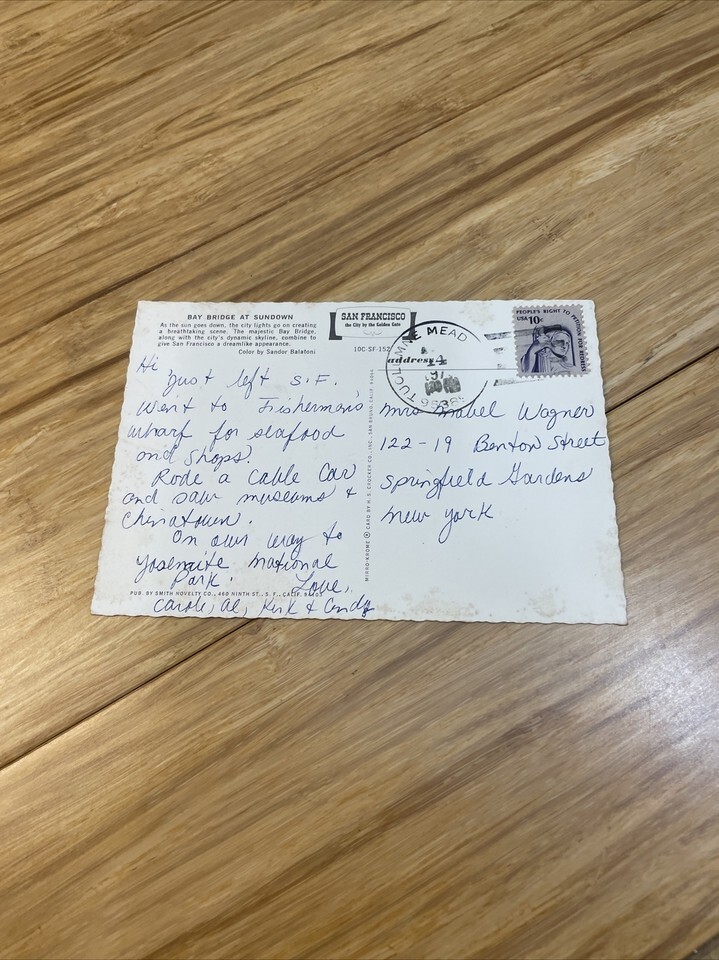 BAY BRIDGE AT SUNDOWN
As the sun goes down, the city lights go on creating
a breathtaking scene. The majestic Bay Bridge,
along with the city's dynamic skyline, combine to
give San Francisco a dreamlike appearance.
Color by Sandor Balatoni
SAN FRANCISCO
the City by the Golden Gate
10C-SF-152
address
TUOLUMNE MEAD
PEOPLE'S RIGHT TO PETITION FOR REDRESS
USA 10c
Hi
Just left S.F.
Went to Fisherman's
wharf for seafood
and shops.
Rode a Cable Car
and saw museums &
Chinatown.
On our way to
Yosemite National
Park.
Love,
Carole, Al, Kirk & Cindy
PUB. BY SMITH NOVELTY CO., 460 NINTH ST., S. F., CALIF.
MIRRO-KROME ® CARD BY H. S. CROCKER CO., INC., SAN BRUNO, CALIF.
Mrs Mabel Wagner
122-19 Benton Street
Springfield Gardens
New York